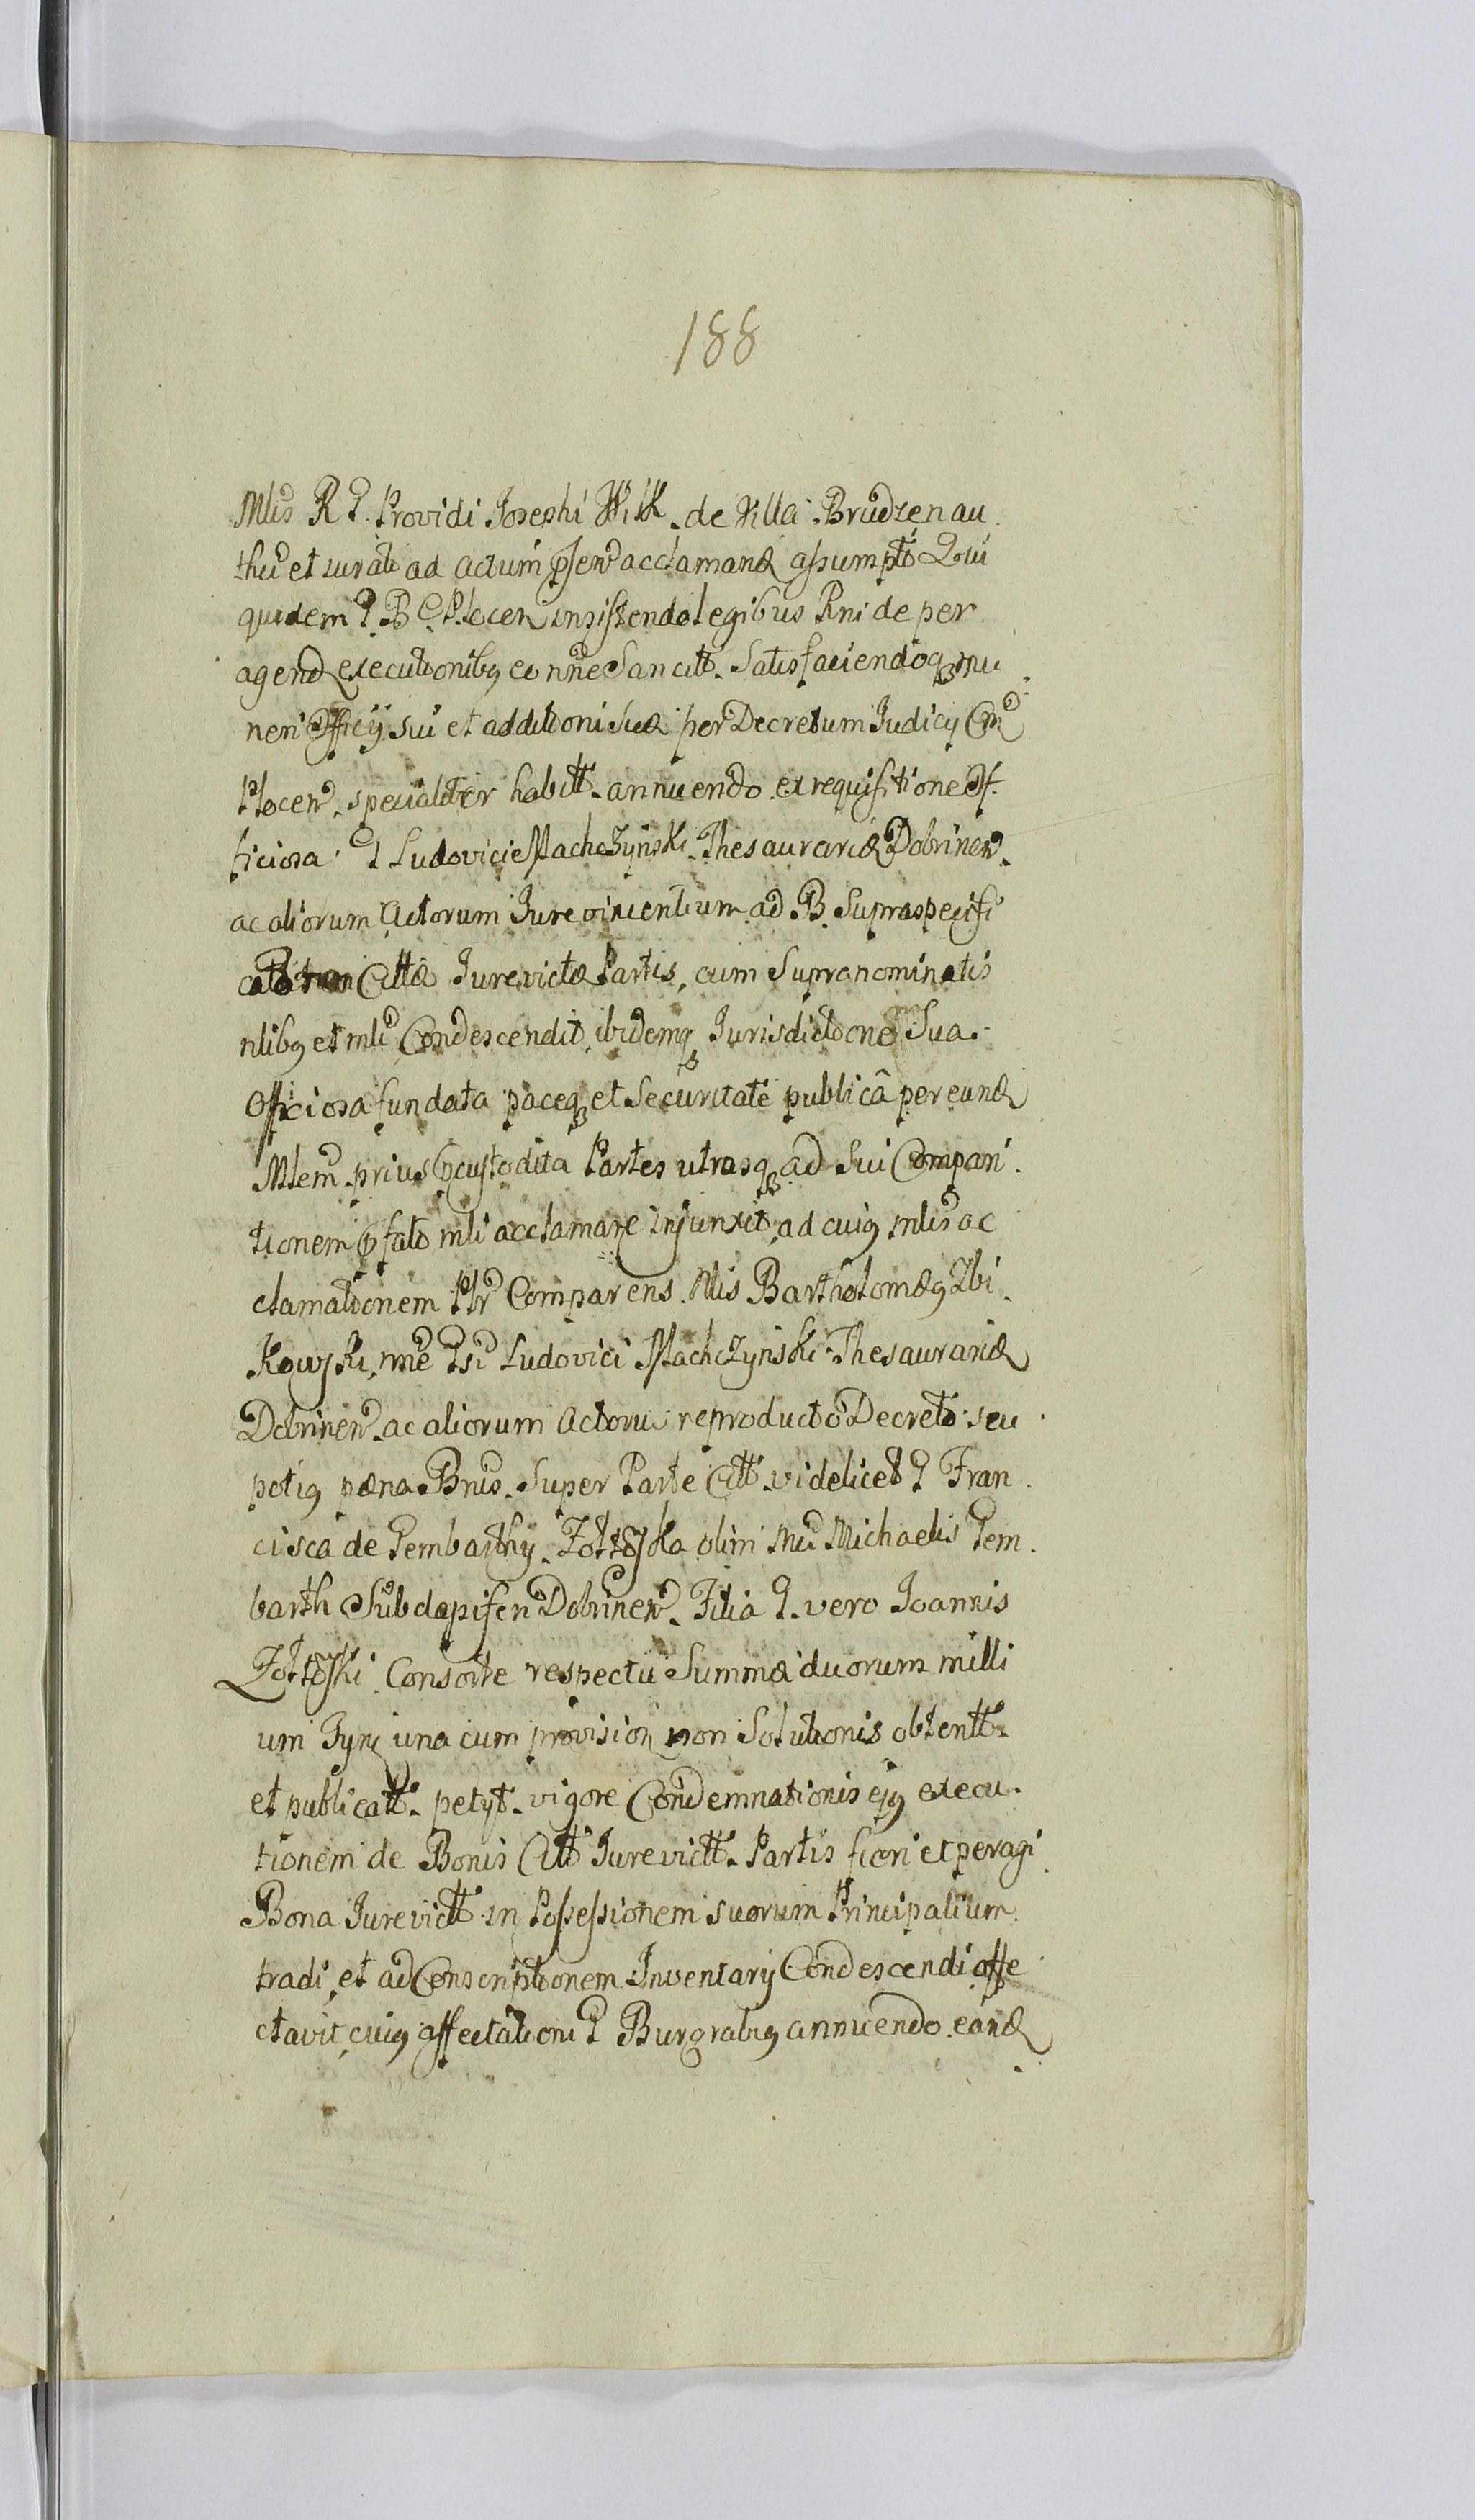 188
Mlis R P. Providi Josephi Wilk de Villa Brudzen au
thci et iurati ad actum pnsen acclamand assumpti Qui
quidem P. B C Plocen insistendo legibus Rni de per
agend executionibq eo nne Sancitt. Satisfaciendoq mu
neri Officij sui et additioni suæ per Decretum Judicij
Plocen. specialiter habitt. annuendo ex requisitione Of
ficiosa P Ludovici Machczynski Thesaurarid Dobrinen.
ac aliorum Actorum Jurevincentium ad B. Supraspecifi
Cittæ Jurevictæ Partis, cum Supranominatis
nlibq et mli Condescendit, ibidemq Jurisdictione Sua
Officiosa fundata paceq et Securitate publicâ per eund
Mlem prius custodita Partes utrasq ad Sui Compari
tionem pfato mli acclamare injunxit, ad cuiq mlis ac
clamationem Pltr Comparens Nlis Bartholomæq Zbi
kowski, nne Psi Ludovici Machczynski Thesaurarid
Dobrinen ac aliorum Actoru reproducto Decreto seu
potiq pæna Bnis. Super Parte Citt. videlicet P Fran
cisca de Pembarthy Zottoska olim Mci Michaelis Pem
barth Subdapiferi Dobrinen. Filia P. vero Joannis
Zottoski Consorte respectu Summæ duorum milli
um Tynf una cum provision non Solutionis obtentt.
et publicatt. petijt vigore Condemnationis ejq execu
tionem de Bonis Citt Jurevictt. Partis fieri et peragi
Bona Jurevictt in Possessionem suorum Principalium
tradi, et ad Conscriptionem Inventarij Condescendi affe
ctavit, cuiq affectationi P Burgrabiq annuendo eand